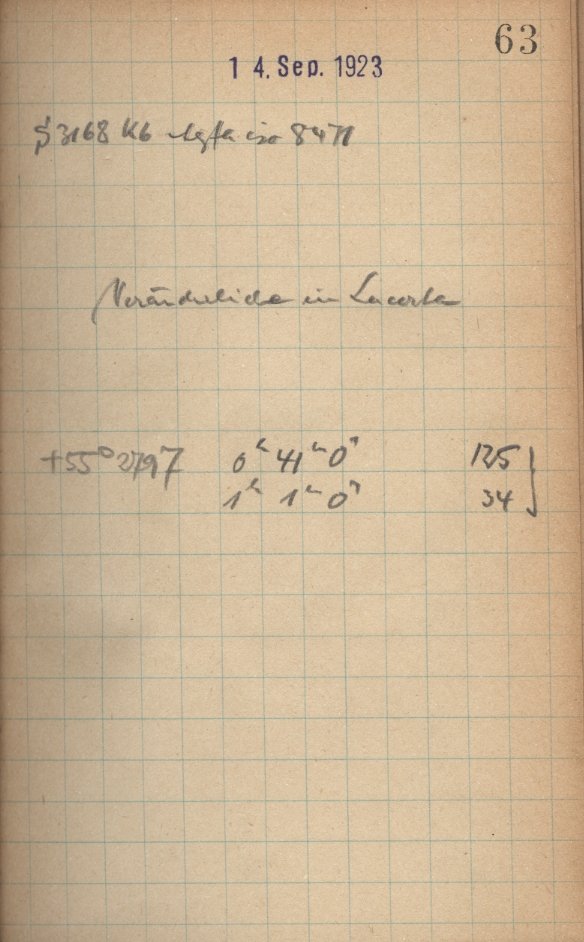 63
14. Sep. 1923
3168 Kb Agfa iso 8471
Veränderliche in Lacerta
+55° 2797 0h 41m 0s 125
1h 1m 0s 34